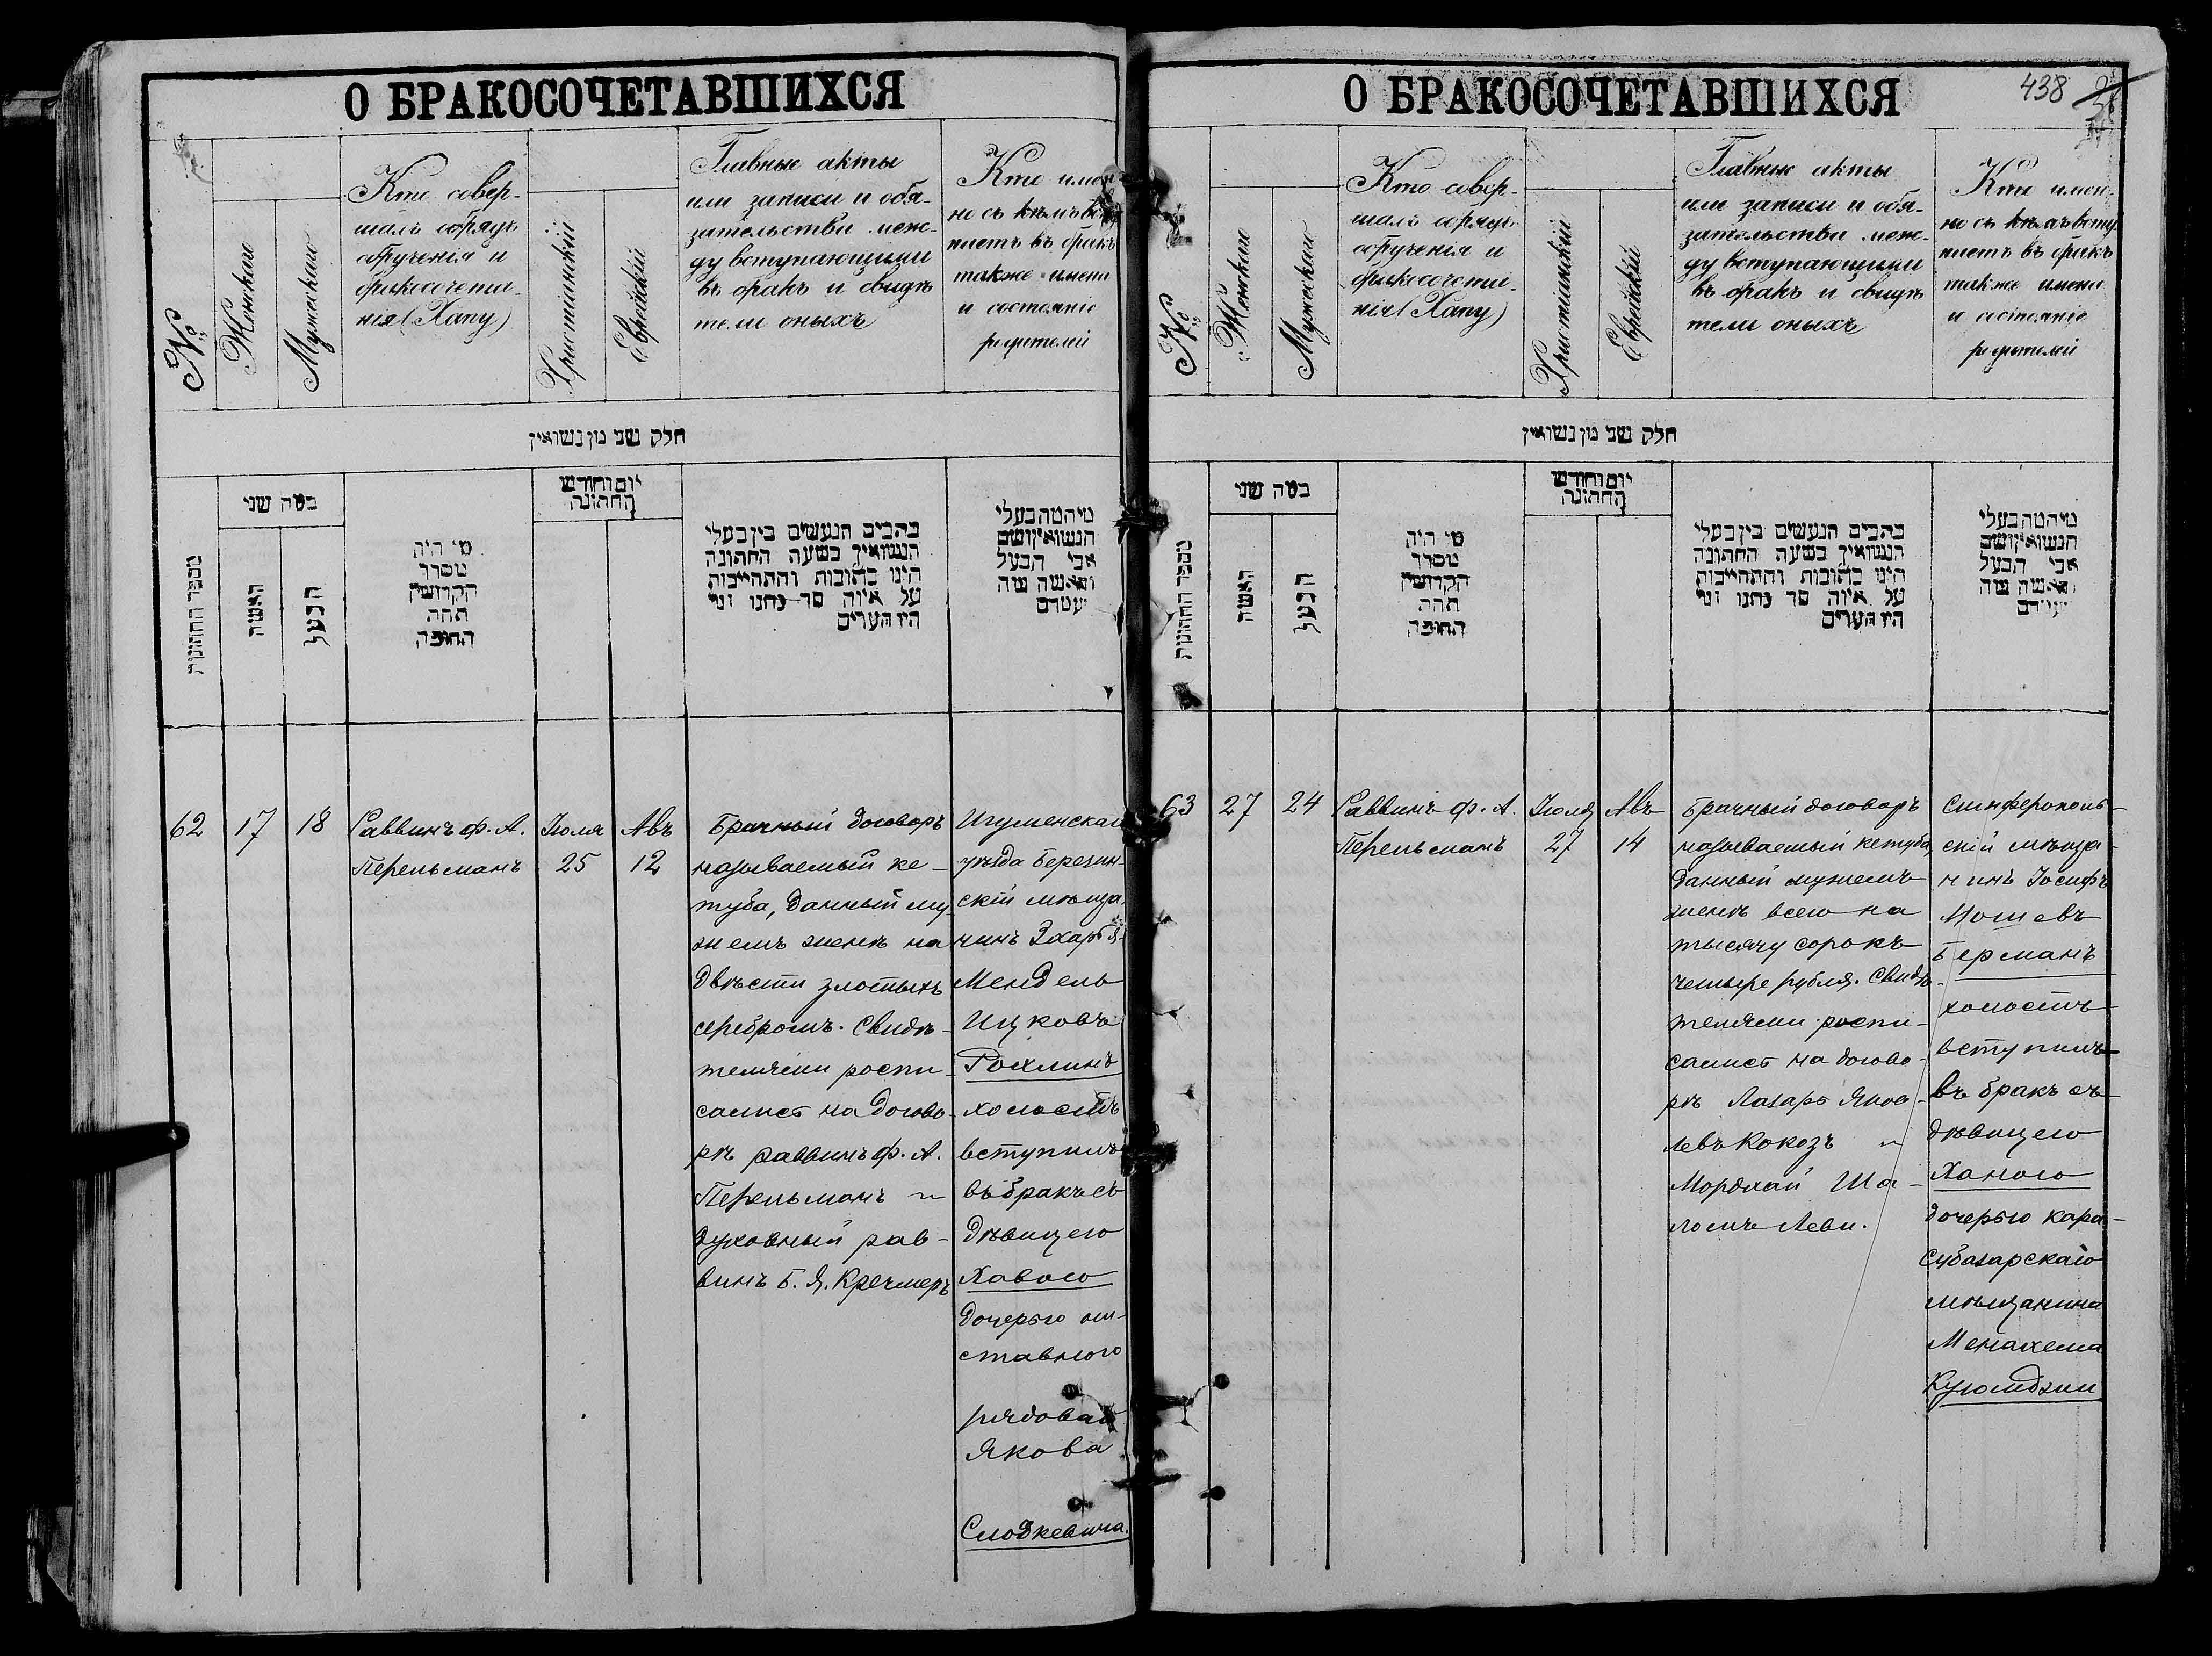 О БРАКОСОЧЕТАВШИХСЯ
№
Женскаго
Мужескаго
Кто совер-
шалъ обрядъ
обрученія и
бракосочета-
нія (Хапу)
Христіанскій
Еврейскій
Главные акты
или записи и обя-
зательства меж-
ду вступающими
въ бракъ и свидѣ
тели оныхъ
Кто имен-
но съ кѣмъ всту
паетъ въ бракъ
также имена
и состояніе
родителей
חלק שני מן נשואין
מספר החתונות
כמה שני
האשה
הבעל
מי היה
מסדר
הקדושין
תחת
החופה
יום וחודש
החתונה
כתבים הנעשים בין בעלי
הנשואין בשעה החתונה
היינו כתובות והתחייבות
על איזה סך נתנו ומי
היו העדים
מיהמה בעלי
הנשואין ושם
אבי הבעל
והאשה מה
יעמדם
62
17
18
Раввинъ ф. А.
Перельманъ
Іюля
25
Авъ
12
Брачный договоръ
называемый ке-
туба, данный му-
жемъ женѣ на
двѣсти злотыхъ
серебромъ. Свидѣ-
телями роспи-
сались на догово-
рѣ раввинъ ф. А.
Перельманъ и
духовный рав-
винъ Б. Я. Кречмеръ
Игуменскаго
уѣзда Березин-
скій мѣща-
нинъ
Мендель
Ицковъ
Рохлинъ
холостъ
вступилъ
въ бракъ съ
дѣвицею
Хавою
дочерью от-
ставного
рядового
Якова
Слодкевича.
438
О БРАКОСОЧЕТАВШИХСЯ
№
Женскаго
Мужескаго
Кто совер-
шалъ обрядъ
обрученія и
бракосочета-
нія (Хапу)
Христіанскій
Еврейскій
Главные акты
или записи и обя-
зательства меж-
ду вступающими
въ бракъ и свидѣ
тели оныхъ
Кто имен-
но съ кѣмъ всту
паетъ въ бракъ
также имена
и состояніе
родителей
חלק שני מן נשואין
מספר החתונות
כמה שני
האשה
הבעל
מי היה
מסדר
הקדושין
תחת
החופה
יום וחודש
החתונה
כתבים הנעשים בין בעלי
הנשואין בשעה החתונה
היינו כתובות והתחייבות
על איזה סך נתנו ומי
היו העדים
מיהמה בעלי
הנשואין ושם
אבי הבעל
והאשה מה
63
27
24
Раввинъ ф. А.
Перельманъ
Іюля
27
Авъ
14
Брачный договоръ
называемый кетуба,
данный мужемъ
женѣ всего на
тысячу сорокъ
четыре рубля. Свидѣ-
телями роспи-
сались на догово-
рѣ Лазарь Яков-
левъ Кокозъ и
Мордхай Ша-
ломъ Леви.
Симферополь-
скій мѣща-
нинъ Іосифъ
Мошевъ
Берманъ
холостъ
вступилъ
въ бракъ съ
дѣвицею
Ханою
дочерью кара-
субазарскаго
мѣщанина
Менахема
Куюмджи